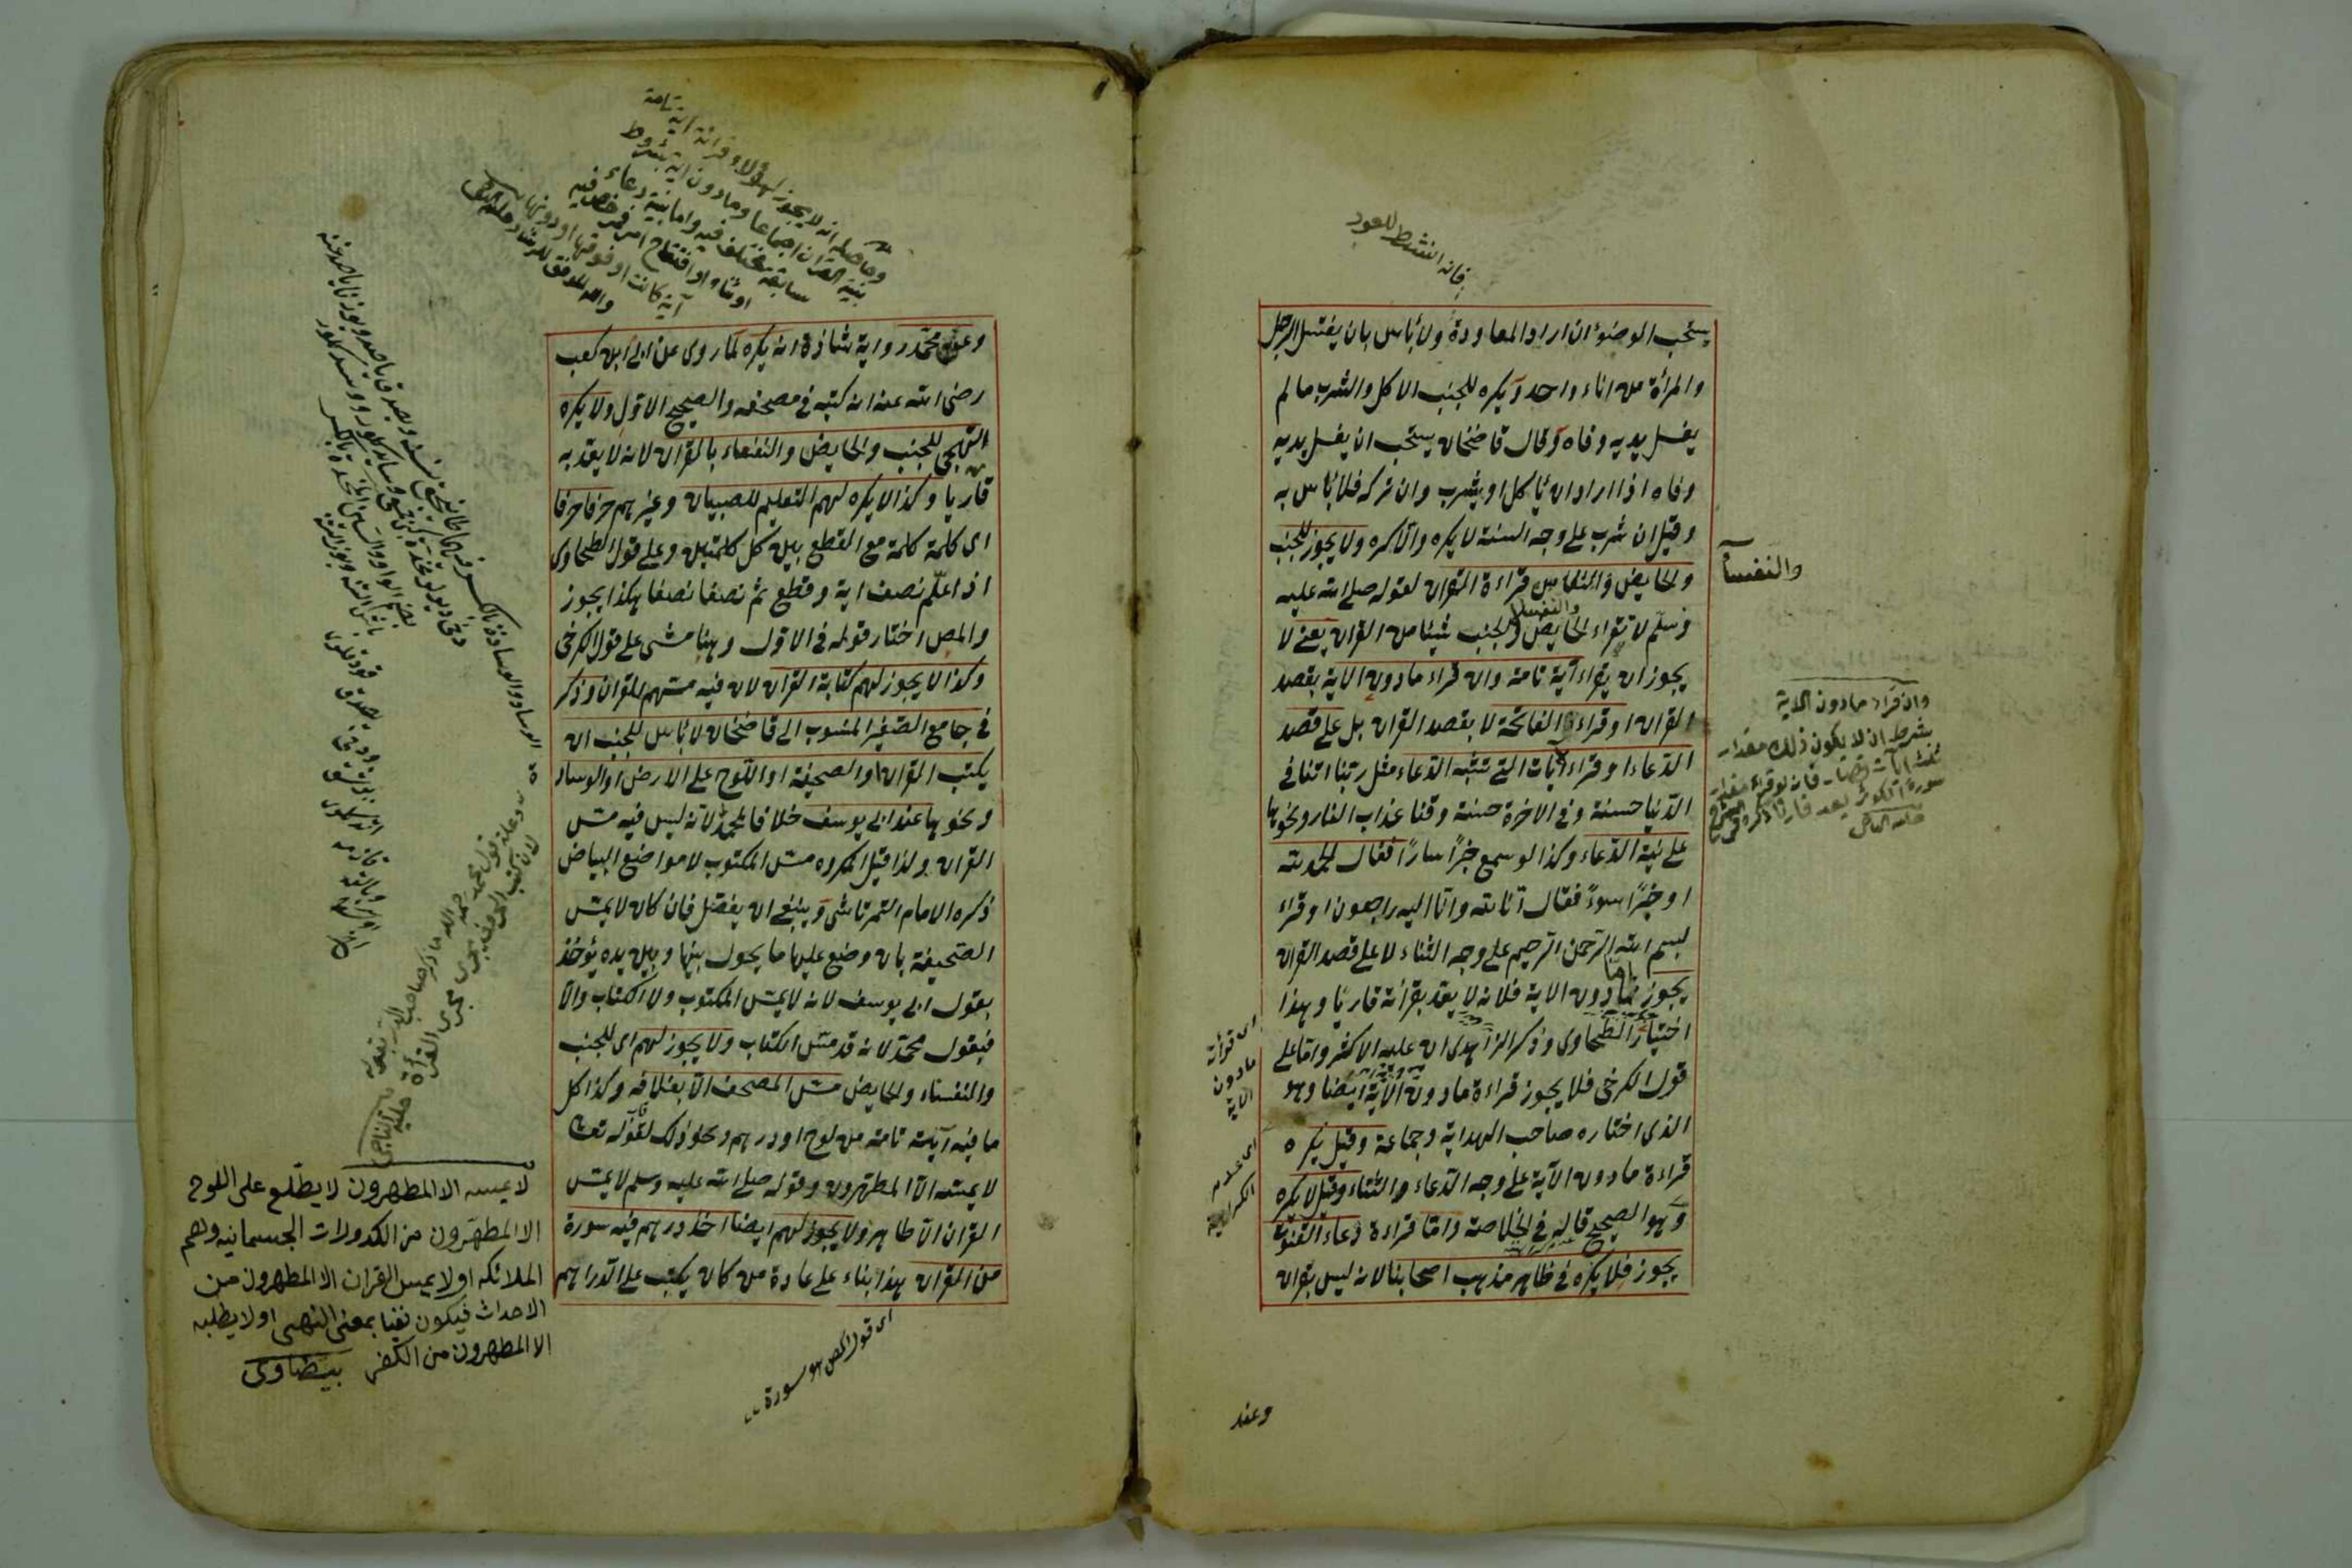 فانه انشط للعود
يستحب الوضوء ان اراد المعاودة ولا بأس بان يغتسل الرجل
والمرأة من اناء واحد ويكره للجنب الاكل والشرب ما لم
يغسل يديه وفاه وقال قاضخان يستحب ان يغسل يديه
وفاه اذا اراد ان يأكل او يشرب وان تركه فلا بأس به
وقيل ان شرب على وجه السنة لا يكره والا كره ولا يجوز للجنب
والحايض والنفاس قراءة القران لقوله صلى الله عليه
وسلم لا تقراء الحايض والنفساء والجنب شيئا من القران يعنى لا
يجوز ان يقراء آية تامة وان قراء ما دون الاية بقصد
القران او قراء الفاتحة لا بقصد القران بل على قصد
الدعاء او قراء الآيات التى تشبه الدعاء مثل ربنا اتنا فى
الدنيا حسنة وفى الاخرة حسنة وقنا عذاب النار ونحوها
على نية الدعاء وكذا لو سمع خبرًا سارًا فقال الحمد لله
او خبرًا سوءً فقال انا لله وانا اليه راجعون او قراء
بسم الله الرحمن الرحيم على وجه الثناء لا على قصد القران
يجوز اما ما دون الاية فلانه لا يعد بقرأته قاريًا وهذا
اختيار الطحاوى وذكر الزاهدى ان عليه الاكثر واما على
قول الكرخى فلا يجوز قراءة ما دون الآية ايضا وهو
الذى اختاره صاحب الهداية وجماعة وقيل يكره
قراءة ما دون الآية على وجه الدعاء والثناء وقيل لا يكره
وهو الصحيح قاله فى الخلاصة واما قراءة دعاء القنوت
يجوز فلا يكره فى ظاهر مذهب اصحابنا لانه ليس بقران
والنفسآ
وان قراء ما دون الاية
بشرط ان لا يكون ذلك مقدار
ثلث آيات قصار فانه لو قراء مقدار
سورة الكوثر يعد قاريًا ذكره فى الشرح
اى قرأة
ما دون
الاية
وعند
وحاصله انه لا يجوز لهؤلاء قرائة اية تامة
بنية القران اجماعا وما دون اية بشروط
سابقة مختلف فيه واما بنية دعاء
او ثناء او افتتاح امر فمرخص فيه
آية كانت او فوقها او دونها
وعن محمد رواية شاذة انه يكره لما روى عن ابى ابن كعب
رضى الله عنه انه كتبه فى مصحفه والصحيح الاول ولا يكره
التهجى للجنب والحايض والنفساء بالقران لانه لا يعد به
قاريا وكذا لا يكره لهم التعليم للصبيان وغيرهم حرفا حرفا
اى كلمة كلمة مع القطع بين كل كلمتين وعلى قول الطحاوى
اذا علّم نصف اية وقطع ثم نصفا نصفا هكذا يجوز
والمص اختار قوله فى الاول وههنا مشى على قول الكرخى
وكذا لا يجوز لهم كتابة القران لان فيه مسهم القران وذكر
فى جامع الصغير المنسوب الى قاضخان لا بأس للجنب ان
يكتب القران او الصحيفة او اللوح على الارض او الوساد
ونحوها عند ابى يوسف خلافا لمحمد لانه ليس فيه مس
القران ولذا قيل المكروه مس المكتوب لا مواضع البياض
ذكره الامام التمرتاشى وينبغى ان يفصل فان كان لا يمس
الصحيفة بان وضع عليها ما يحول بينها وبين يده يؤخذ
بقول ابى يوسف لانه لا يمس المكتوب ولا الكتاب والا
فبقول محمد لانه قد مس الكتاب ولا يجوز لهم اى للجنب
والنفساء والحايض مس المصحف الا بغلافه وكذا كل
ما فيه آية تامة من لوح او درهم ونحو ذلك لقوله تعالى
لا يمسه الا المطهرون وقوله صلى الله عليه وسلم لا يمس
القران الا طاهر ولا يجوز لهم ايضا اخذ درهم فيه سورة
من القران هذا بناء على عادة من كان يكتب على الدراهم
اى قول المص هو سورة
لا يمسه الا المطهرون لا يطلع على اللوح
الا المطهرون من الكدورات الجسمانيه وهم
الملائكه او لا يمس القران الا المطهرون من
الاحداث فيكون نفيا بمعنى النهى او لا يطلبه
الا المطهرون من الكفر بيضاوى